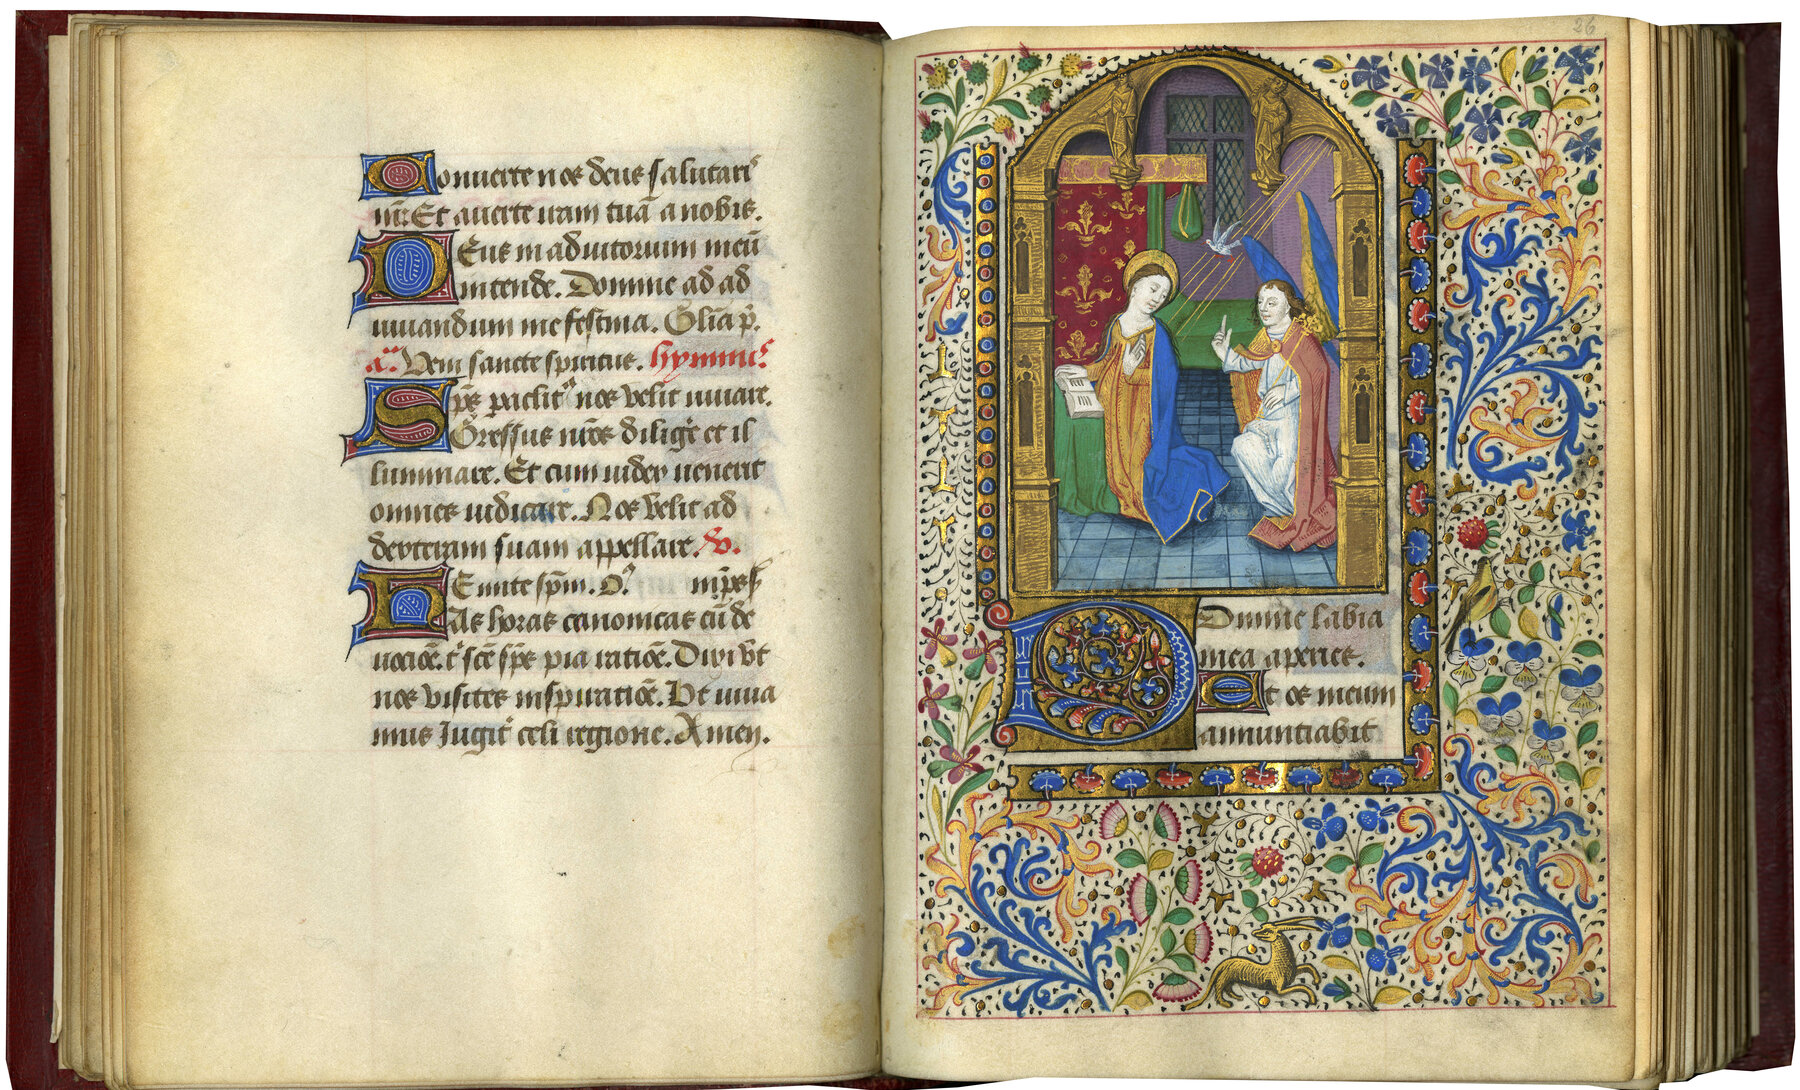 Conuerte nos deus salutaris
nr̄: Et auerte iram tuā a nobis.
Deus in adiutorium meū
intende. Domine ad ad
iuuandum me festina. Gl̄ia p̄.
a͞. Veni sancte spiritus. hymnus
Sp̄s paclitꝰ nos velit iuuare.
Gressus nr̄os dirige et il
luminare. Et cum iudex uenerit
omnes iudicare. Nos velit ad
dexteram suam appellare. v̄.
Emitte sp̄m. Oꝰ. imp̄es
Has horas canonicas cū de
uocioē. t' sc̄e sp̄s pia ratioē. Dixi vt
nos visites inspiratioē. Vt uiua
mus Jugitꝰ celi regione. Amen.
26
Domine labia
mea aperies.
Et os meum
annuntiabit